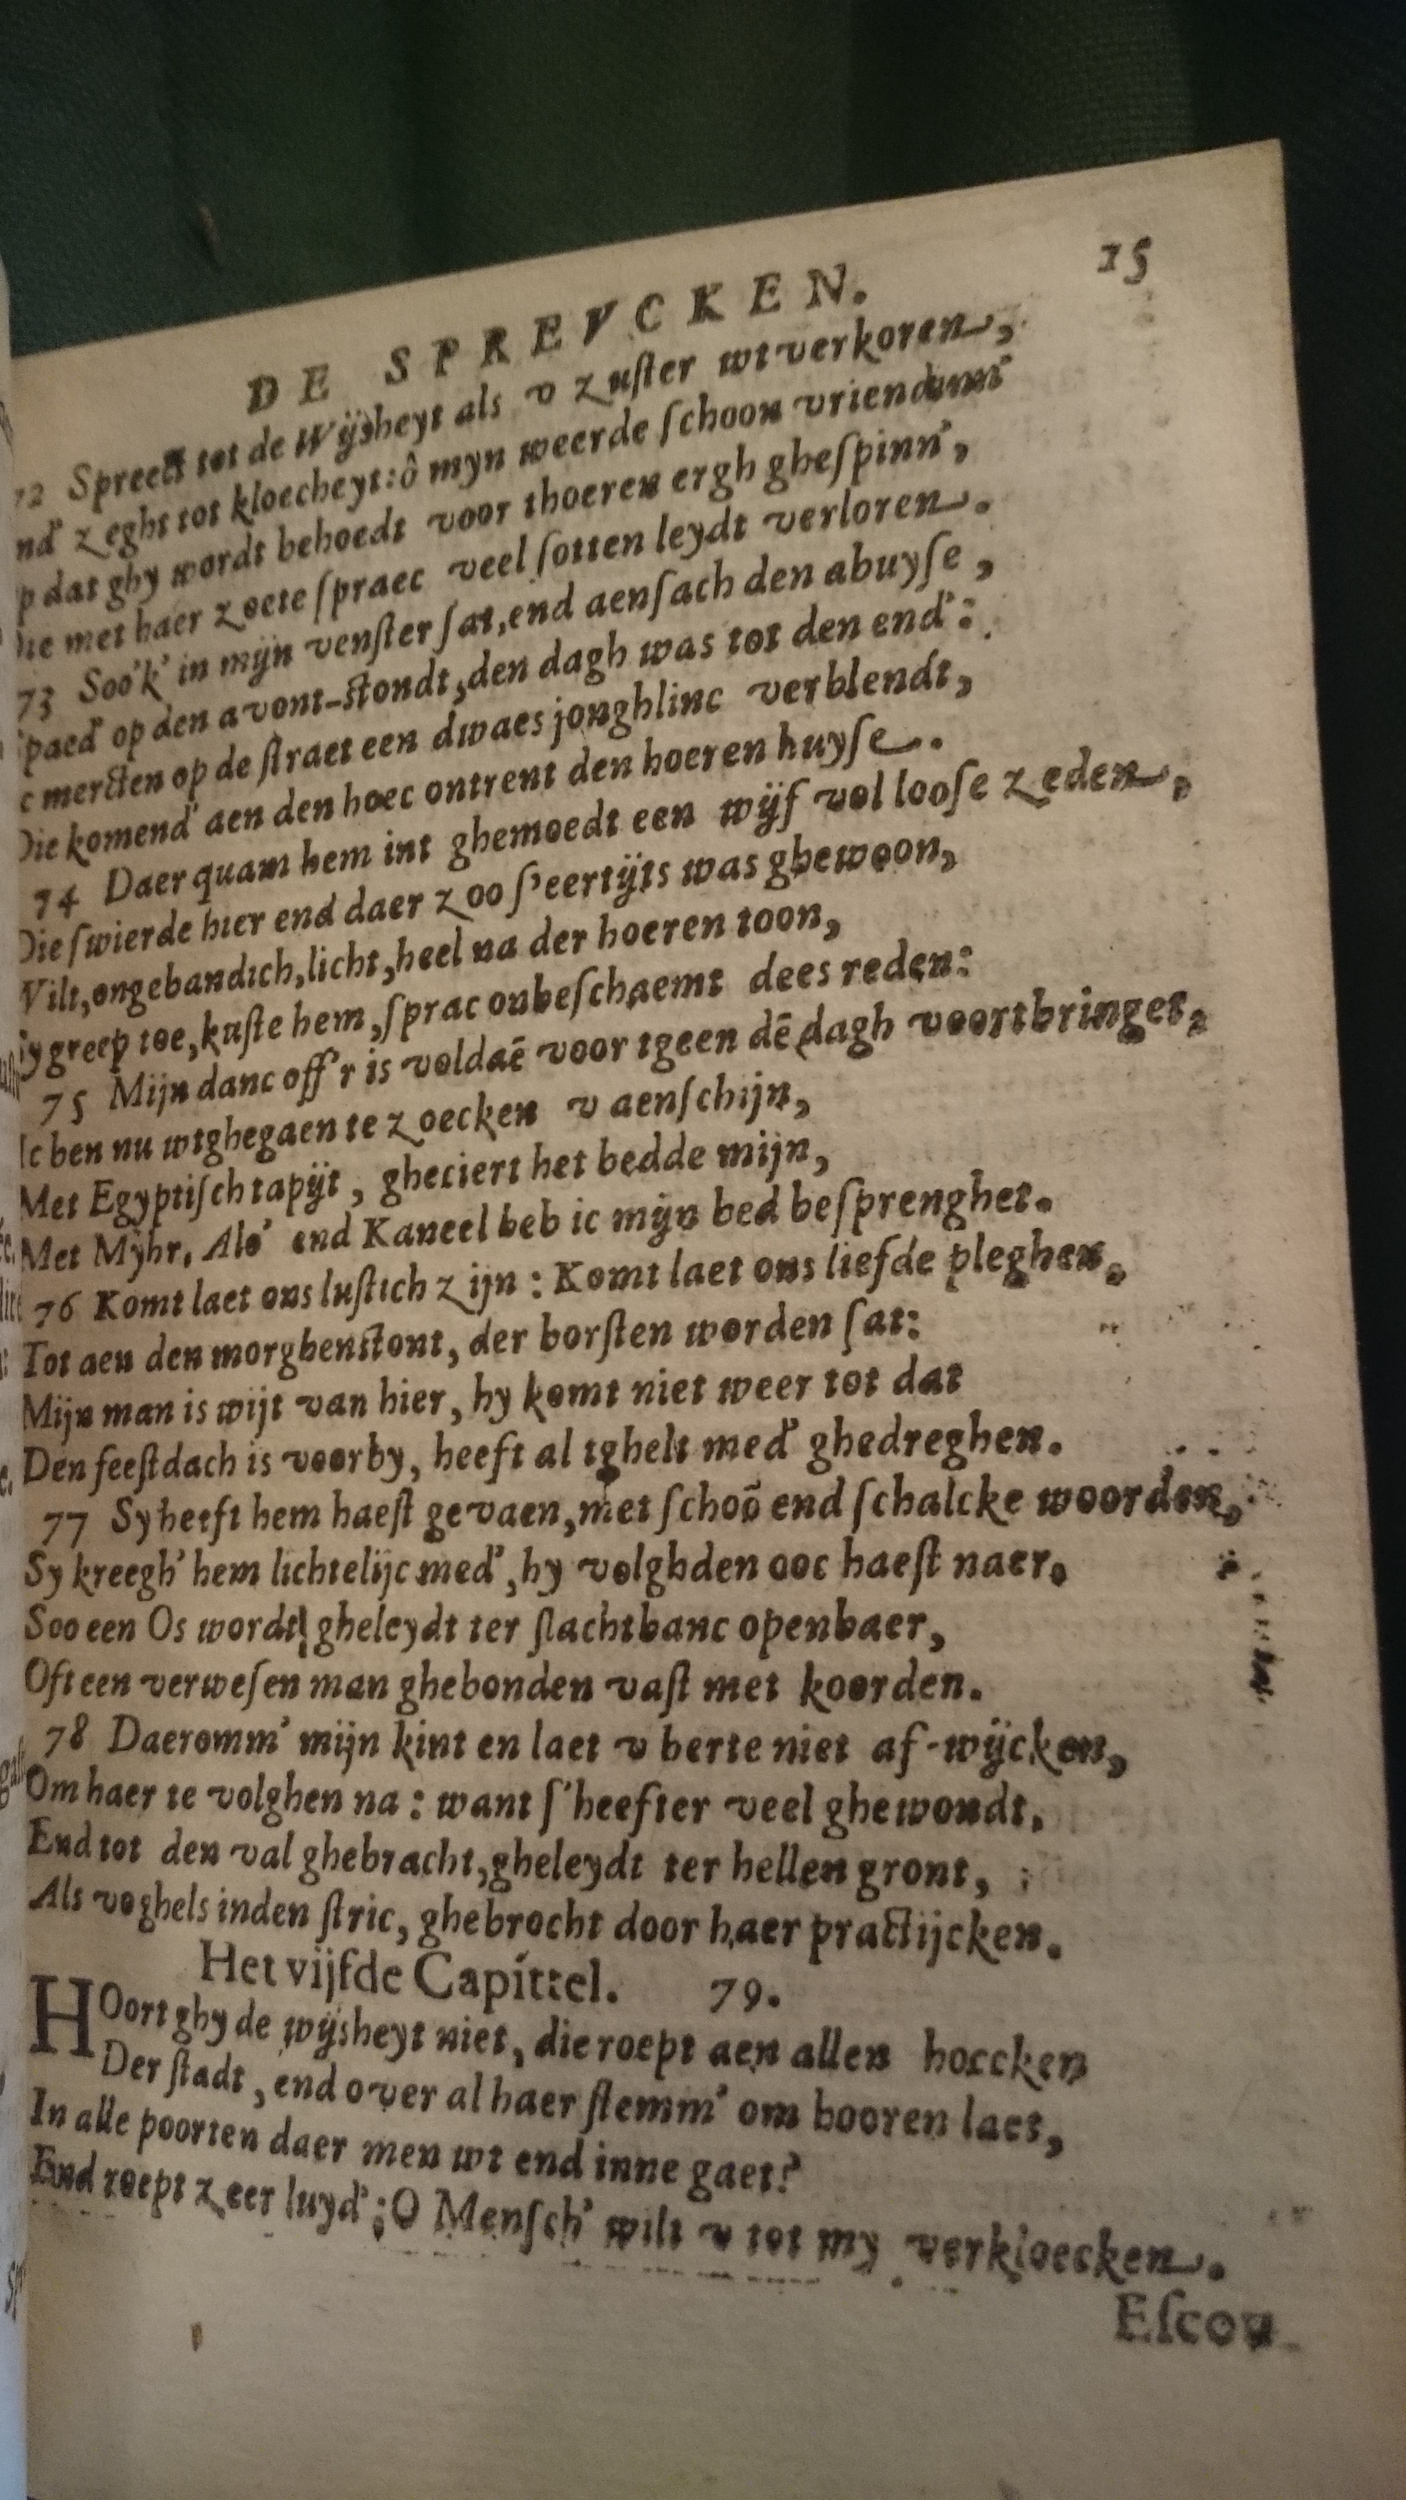 15
DE SPREVCKEN.
72 Spreeckt tot de Wijsheyt als v zuster wtverkoren,
nd' zeght tot kloecheyt: ô myn weerde schoon vriendinn'
p dat ghy wordt behoedt voor thoeren ergh ghespinn',
ie met haer zoete spraec veel sotten leydt verloren.
73 Soo'k' in mijn venster sat, end aensach den abuyse,
spaed' op den avont-stondt, den dagh was tot den end':
c mercten op de straet een dwaes jonghlinc verblendt,
Die komend' aen den hoec ontrent den hoeren huyse.
74 Daer quam hem int ghemoedt een wijf vol loose zeden,
Die swierde hier end daer zoo s'eertijts was ghewoon,
Wilt, ongebandich, licht, heel na der hoeren toon,
Sy greep toe, kuste hem, sprac onbeschaemt dees reden:
75 Mijn danc off'r is voldaē voor tgeen dē dagh voortbringet,
Ic ben nu wtghegaen te zoecken v aenschijn,
Met Egyptisch tapijt, gheciert het bedde mijn,
Met Myhr, Aloë end Kaneel heb ic mijn bed besprenghet.
76 Komt laet ons lustich zijn: Komt laet ons liefde pleghen,
Tot aen den morghenstont, der borsten worden sat:
Mijn man is wijt van hier, hy komt niet weer tot dat
Den feestdach is voorby, heeft al tghelt med' ghedreghen.
77 Sy heeft hem haest gevaen, met schoō end schalcke woorden,
Sy kreegh' hem lichtelijc med', hy volghden ooc haest naer,
Soo een Os wordt gheleydt ter slachtbanc openbaer,
Oft een verwesen man ghebonden vast met koorden.
78 Daeromm' mijn kint en laet v herte niet af-wijcken,
Om haer te volghen na: want s'heefter veel ghewondt,
End tot den val ghebracht, gheleydt ter hellen gront,
Als voghels inden stric, ghebrocht door haer practijcken.
Het vijfde Capittel. 79.
HOort ghy de wijsheyt niet, die roept aen allen hoecken
Der stadt, end over al haer stemm' om hooren laet,
In alle poorten daer men wt end inne gaet?
End roept zeer luyd'; O Mensch' wilt v tot my verkloecken.
Escou-